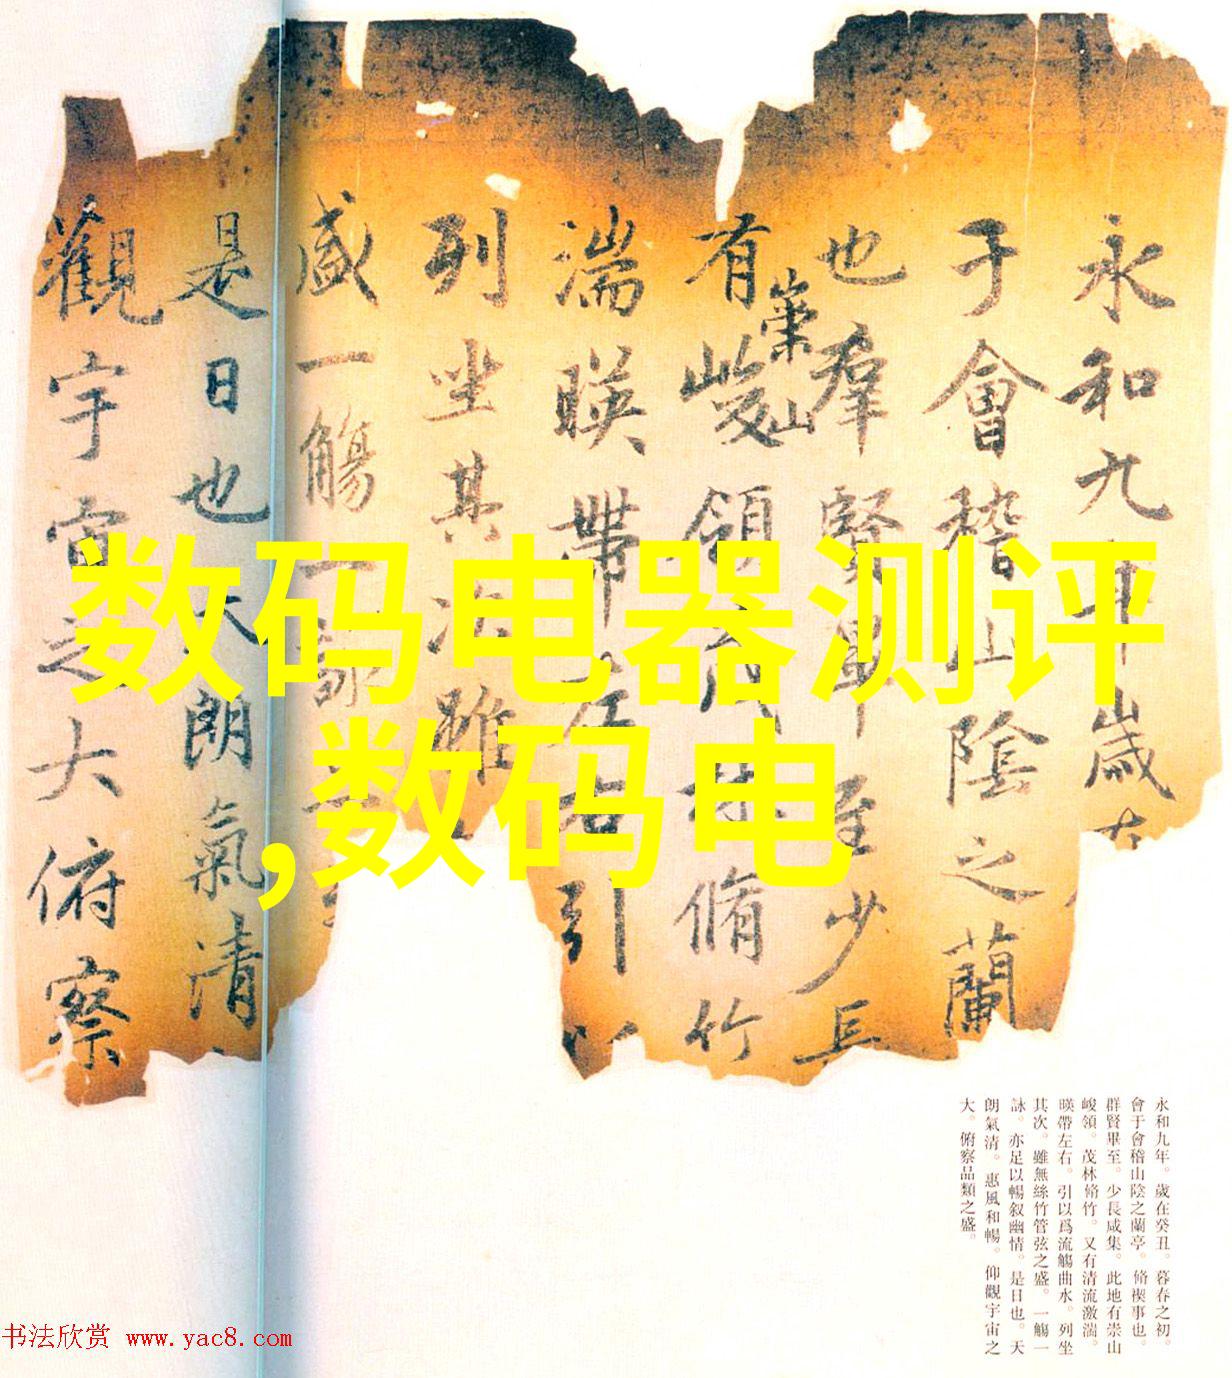 永和九年歲在
于會稽山陰之蘭
也羣賢畢至少長
有崇山峻領茂林脩竹
湍暎帶左右引以
列坐其次雖
盛一觴一詠
是日也天朗氣清
觀宇宙之大俯察
数码电器测评
,数码电
永和九年。歲在癸丑。暮春之初。
會于會稽山陰之蘭亭。脩禊事也。
群賢畢至。少長咸集。此地有崇山
峻領。茂林脩竹。又有清流激湍。
暎帶左右。引以爲流觴曲水。列坐
其次。雖無絲竹管弦之盛。一觴一
詠。亦足以暢叙幽情。是日也。天
朗氣清。惠風和暢。仰觀宇宙之
大。俯察品類之盛。
书法欣赏 www.yac8.com